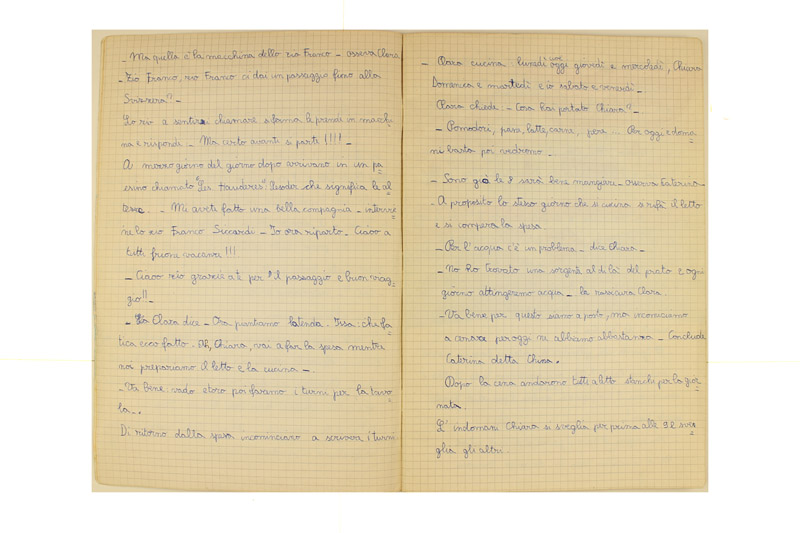 - Ma quella è la macchina dello zio Franco - osserva Clara
- Zio Franco, zio Franco ci dai un passaggio fino alla
Svizzera? -
Lo zio a sentirsi chiamare si ferma le prende in macchi
na e risponde - Ma certo avanti si parte !!!! -
A mezzo giorno del giorno dopo arrivano in un pa
esino chiamato "Les Hauderes"
che significa le al
tesse. - Mi avete fatto una bella compagnia - interve
ne lo zio Franco Siccardi - Io ora riparto. Ciaoo a
tutti buone vacanze !!!
- Ciaoo zio grazie a te per il passaggio e buon viag
gio!! -
- Clara dice - Ora puntiamo la tenda. Issa: che fa
tica ecco fatto. Oh, Chiara, vai a far la spesa mentre
noi prepariamo il letto e la cucina -.
- Va bene vado e loro poi faremo i turni per la tavo
la -.
Di ritorno dalla spesa incominciano a scrivere i turni
- Clara cucina lunedì oggi giovedì e mercoledì, Chiara
Domenica e martedì e io sabato e venerdì -
Clara chiede - Cosa hai portato China? -
- Pomodori, pane, latte, carne, pera ... Per oggi e doma
ni basta poi vedremo -
- Sono già le 8 sarà bene mangiare - osserva Caterina
- A proposito lo stesso giorno che si cucina si rifà il letto
e si compera la spesa.
- Per l'acqua c'è un problema - dice Chiara -
- No ho trovato una sorgente al di là del prato e ogni
giorno attingeremo acqua - la rassicura Clara.
- Va bene per questo siamo a posto, ma incominciamo
a cenare per oggi ne abbiamo abbastanza - Conclude
Caterina detta China.
Dopo la cena andarono tutti a letto stanchi per la gior
nata.
L'indomani Chiara si sveglia per prima alle 9 e sve
glia gli altri.